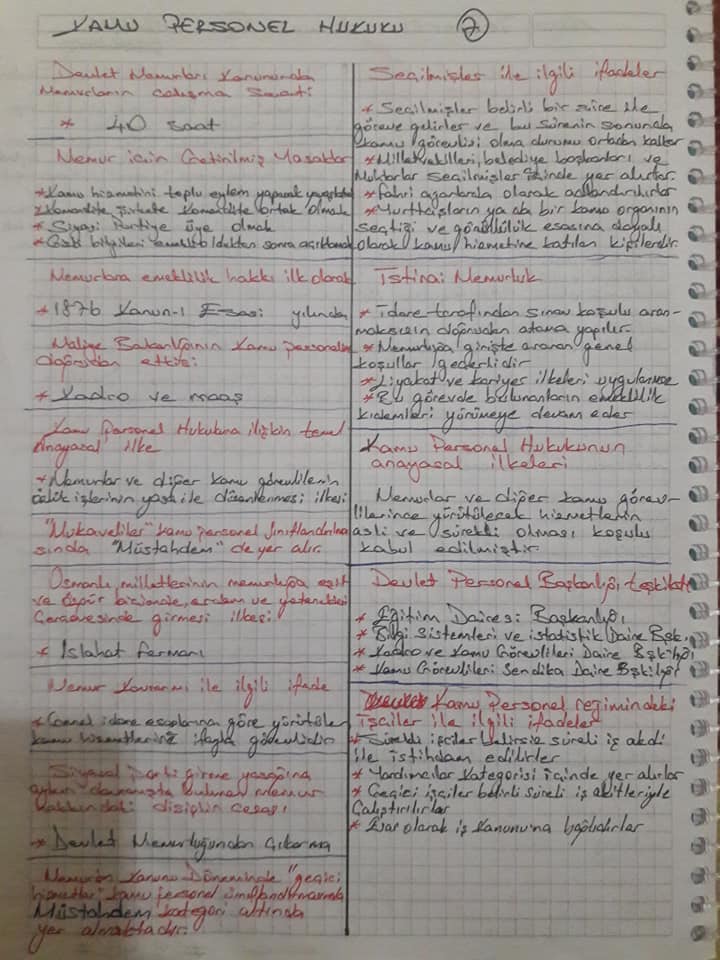 KAMU PERSONEL HUKUKU 7
Devlet Memurları Kanununda
Memurların çalışma Saati:
* 40 saat
Memur için Getirilmiş Yasaklar
* Kamu hizmetini toplu eylem yaparak yavaşlatma
* Komandite şirkette Komandite ortak olmak
* Siyasi Partiye üye olmak
* Gizli bilgileri emekli oldukten sonra açıklamak
Memurlara emeklilik hakkı ilk olarak
* 1876 Kanun-ı Esasi yılında
Maliye Bakanlığının Kamu personelini
doğrudan ettiği:
* Kadro ve maaş
Kamu Personel Hukukuna ilişkin temel
Anayasal ilke
* Memurlar ve diğer kamu görevlilerinin
özlük işlerinin yasa ile düzenlenmesi ilkesi
"Mukaveliler" kamu personel Sınıflandırılma
sında "Müstahdem" de yer alır.
Osmanlı milletlerinin memurluğa eşit
ve özgür biçimde, erdem ve yetenekleri
Çerçevesinde girmesi ilkesi
* Islahat fermanı
Memur kavramı ile ilgili ifade
* Genel idare esaslarına göre yürütülen
kamu hizmetlerini ifayla görevlidir
Siyasal parti girme yasağına
aykırı davranışta bulunan memur
hakkındaki disiplin cezası
* Devlet Memurluğundan Çıkarma
Memurin Kanunu Döneminde "geçici
hizmetler" kamu personel sınıflandırmasında
Müstahdem kategori altında
yer almaktadır.
Seçilmişler ile ilgili ifadeler
* Seçilmişler belirli bir süre ile
göreve gelirler ve bu sürenin sonunda
kamu görevlisi olma durumu ortadan kalkar
* Milletvekilleri, belediye başkanları ve
Muhtarlar seçilmişler içinde yer alırlar.
* fahri ajanlarda olarak adlandırılırlar
* Yurttaşların ya da bir kamu organının
seçtiği ve gönüllülük esasına dayalı
olarak kamu hizmetine katılan kişilerdir.
İstinai Memurluk
* İdare tarafından sınav koşulu aran-
maksızın doğrudan atama yapılır.
* Memurluğa girişte aranan genel
koşullar geçerlidir
* Liyakat ve kariyer ilkeleri uygulanmaz
* Bu görevde bulunanların emeklilik
kıdemleri yürümeye devam eder
Kamu Personel Hukukunun
anayasal ilkeleri
Memurlar ve diğer kamu görev-
lilerince yürütülecek hizmetlerin
asli ve sürekli olması koşulu
kabul edilmiştir
Devlet Personel Başkanlığı teşkilatı
* Eğitim Dairesi Başkanlığı
* Bilgi Sistemleri ve istatistik Daire Bşk.
* Kadro ve Kamu Görevlileri Daire Bşk'lığı
* Kamu Görevlileri Sendika Daire Bşk'lığı
Kamu Personel rejimindeki
işçiler ile ilgili ifadeler
* Sürekli işçiler belirsiz süreli iş akdi
ile istihdam edilirler
* Yardımcılar kategorisi içinde yer alırlar
* Geçici işçiler belirli süreli iş akitleriyle
Çalıştırılırlar
* olarak iş Kanunu'na bağlıdırlar